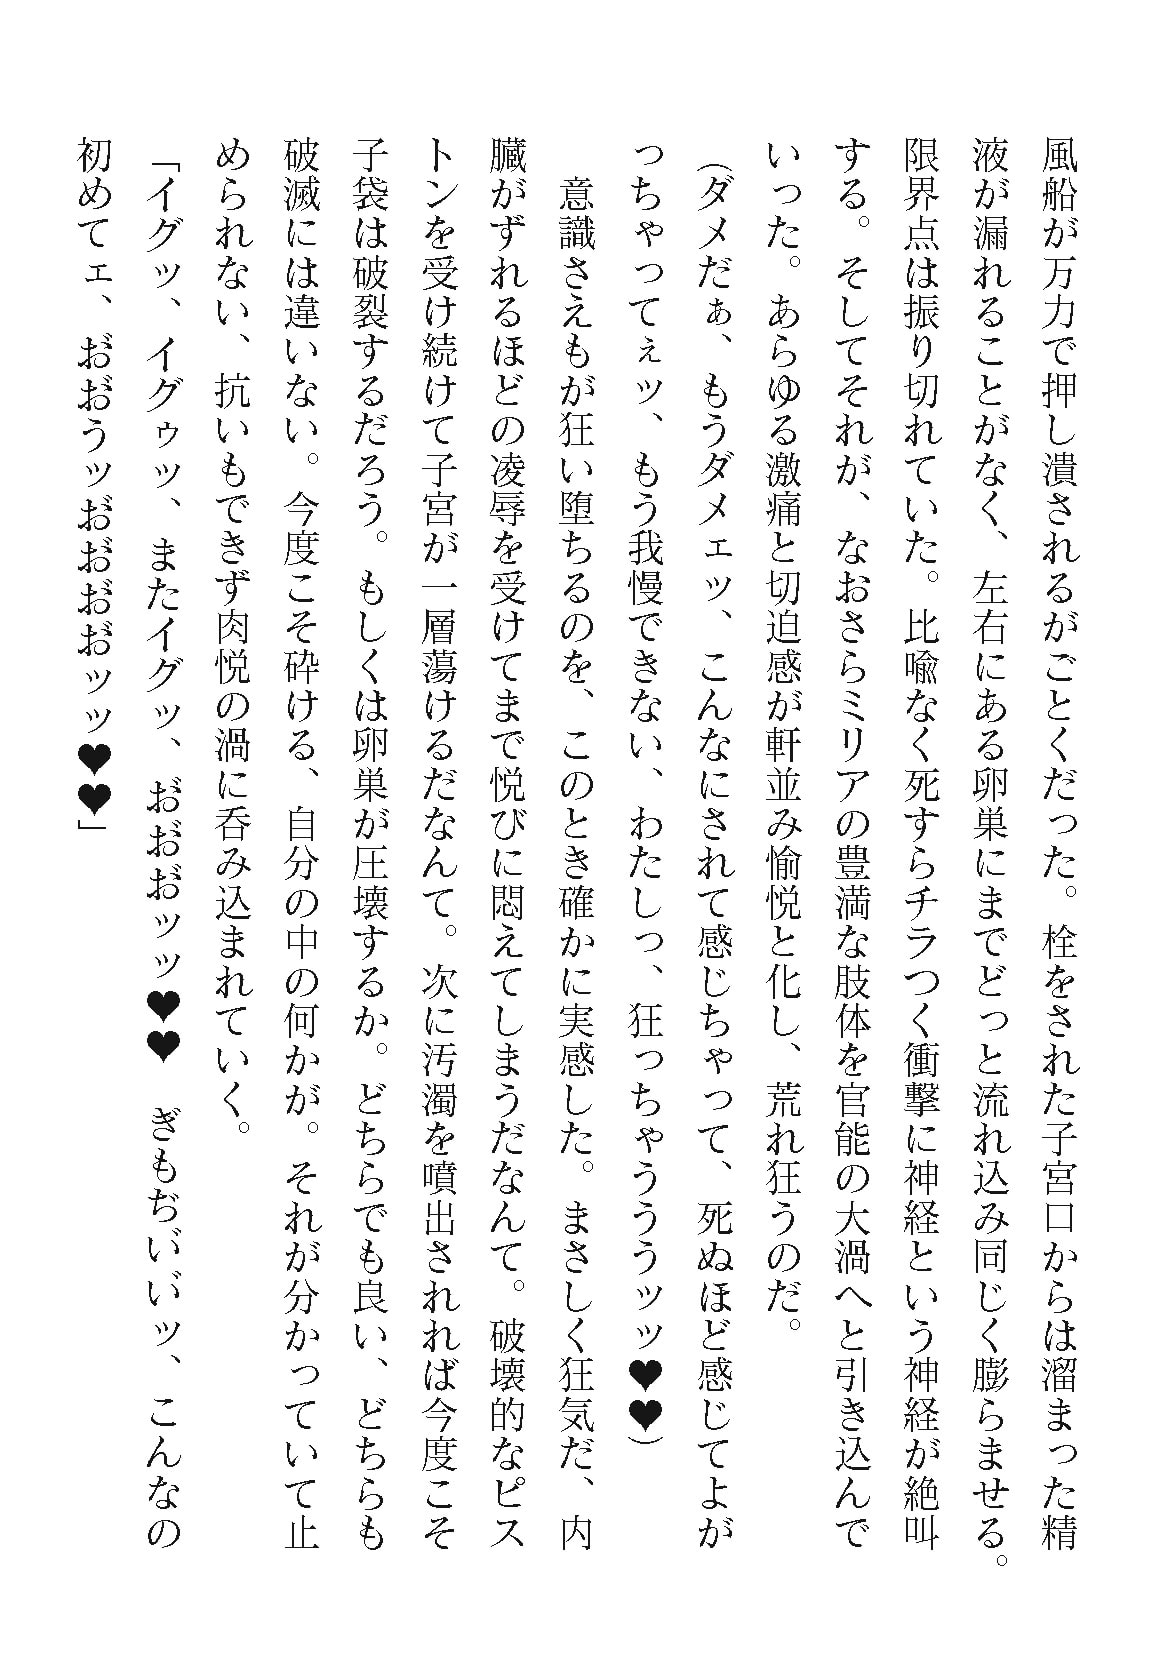 風船が万力で押し潰されるがごとくだった。栓をされた子宮口からは溜まった精
液が漏れることがなく、左右にある卵巣にまでどっと流れ込み同じく膨らませる。
限界点は振り切れていた。比喩なく死すらチラつく衝撃に神経という神経が絶叫
する。そしてそれが、なおさらミリアの豊満な肢体を官能の大渦へと引き込んで
いった。あらゆる激痛と切迫感が軒並み愉悦と化し、荒れ狂うのだ。
（ダメだぁ、もうダメェッ、こんなにされて感じちゃって、死ぬほど感じてよが
っちゃってぇッ、もう我慢できない、わたしっ、狂っちゃうううッッ♥♥）
　意識さえもが狂い堕ちるのを、このとき確かに実感した。まさしく狂気だ、内
臓がずれるほどの凌辱を受けてまで悦びに悶えてしまうだなんて。破壊的なピス
トンを受け続けて子宮が一層蕩けるだなんて。次に汚濁を噴出されれば今度こそ
子袋は破裂するだろう。もしくは卵巣が圧壊するか。どちらでも良い、どちらも
破滅には違いない。今度こそ砕ける、自分の中の何かが。それが分かっていて止
められない、抗いもできず肉悦の渦に呑み込まれていく。
「イグッ、イグゥッ、またイグッ、お゙お゙お゙ッッ♥♥　ぎもぢい゙い゙ッ、こんなの
初めてェ、お゙お゙うッお゙お゙お゙お゙ッッ♥♥」